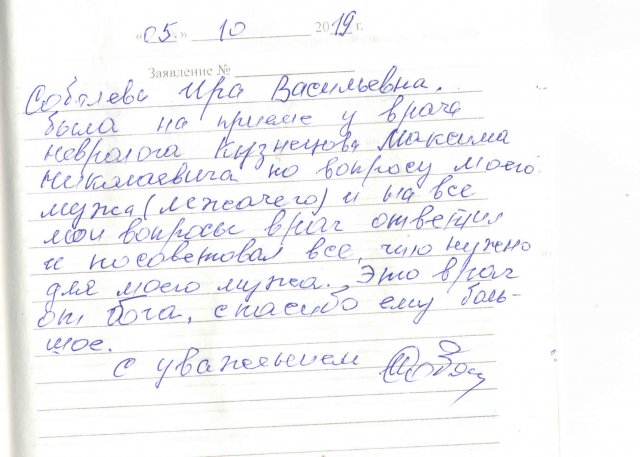 «05.» 10 2019 г.
Заявление №
Соболева Ира Васильевна.
была на приеме у врача
невролога Кузнецова Максима
Николаевича по вопросу моего
мужа (лежачего) и на все
мои вопросы врач ответил
и посоветовал все, что нужно
для моего мужа. Это врач
от бога, спасибо ему боль-
шое.
с уважением